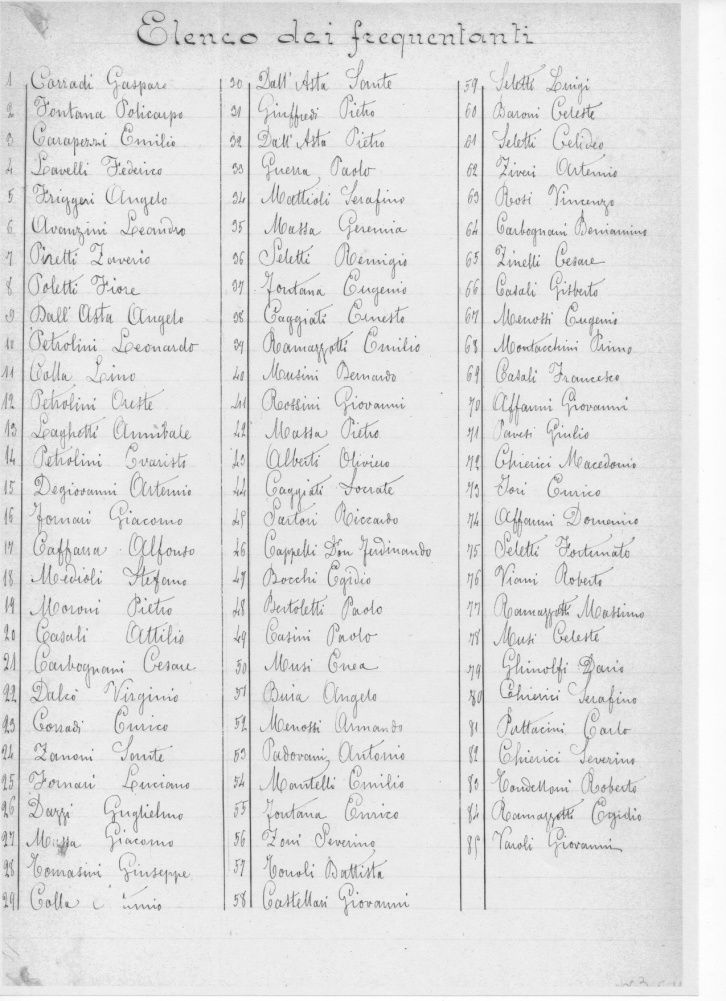 Elenco dei frequentanti
1 Corradi Gaspare
2 Fontana Policarpo
3 Carapezzi Emilio
4 Lavelli Federico
5 Friggeri Angelo
6 Avanzini Leandro
7 Piretti Zaverio
8 Poletti Fiore
9 Dall'Asta Angelo
10 Petrolini Leonardo
11 Colla Lino
12 Petrolini Oreste
13 Laghotti Annibale
14 Petrolini Evaristo
15 Degiovanni Artemio
16 Fornari Giacomo
17 Caffarra Alfonso
18 Medioli Stefano
19 Moroni Pietro
20 Casali Attilio
21 Carbognani Cesare
22 Dalcò Virginio
23 Corradi Enrico
24 Zanoni Sante
25 Fornari Luciano
26 Dazzi Guglielmo
27 Massa Giacomo
28 Tomasini Giuseppe
29 Colla
30 Dall'Asta Sante
31 Giuffredi Pietro
32 Dall'Asta Pietro
33 Guerra Paolo
34 Mattioli Serafino
35 Massa Geremia
36 Seletti Remigio
37 Fontana Eugenio
38 Caggiati Ernesto
39 Ramazzotti Emilio
40 Musini Bernardo
41 Rossini Giovanni
42 Massa Pietro
43 Alberti Oliviero
44 Caggiati Socrate
45 Sartori Riccardo
46 Cappelli Don Ferdinando
47 Bocchi Egidio
48 Bertoletti Paolo
49 Casini Paolo
50 Musi Enea
51 Buia Angelo
52 Menossi Armando
53 Padovani Antonio
54 Mantelli Emilio
55 Fontana Enrico
56 Zoni Severino
57 Tonoli Battista
58 Castellari Giovanni
59 Seletti Luigi
60 Baroni Celeste
61 Seletti Celideo
62 Ziveri Artemio
63 Rosi Vincenzo
64 Carbognani Beniamino
65 Zinelli Cesare
66 Casali Gisberto
67 Menossi Eugenio
68 Montacchini Primo
69 Casali Francesco
70 Affanni Giovanni
71 Pavesi Giulio
72 Chierici Macedonio
73 Iori Enrico
74 Affanni Domenico
75 Seletti Fortunato
76 Viani Roberto
77 Ramazzotti Massimo
78 Musi Celeste
79 Ghinolfi Dario
80 Chierici Serafino
81 Pattacini Carlo
82 Chierici Severino
83 Tondelloni Roberto
84 Ramazzotti Egidio
85 Varoli Giovanni